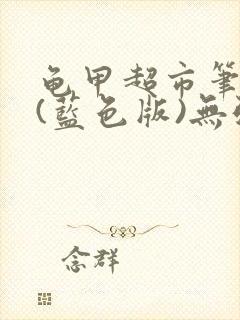 龟甲超市筆
(藍色版)無
念群